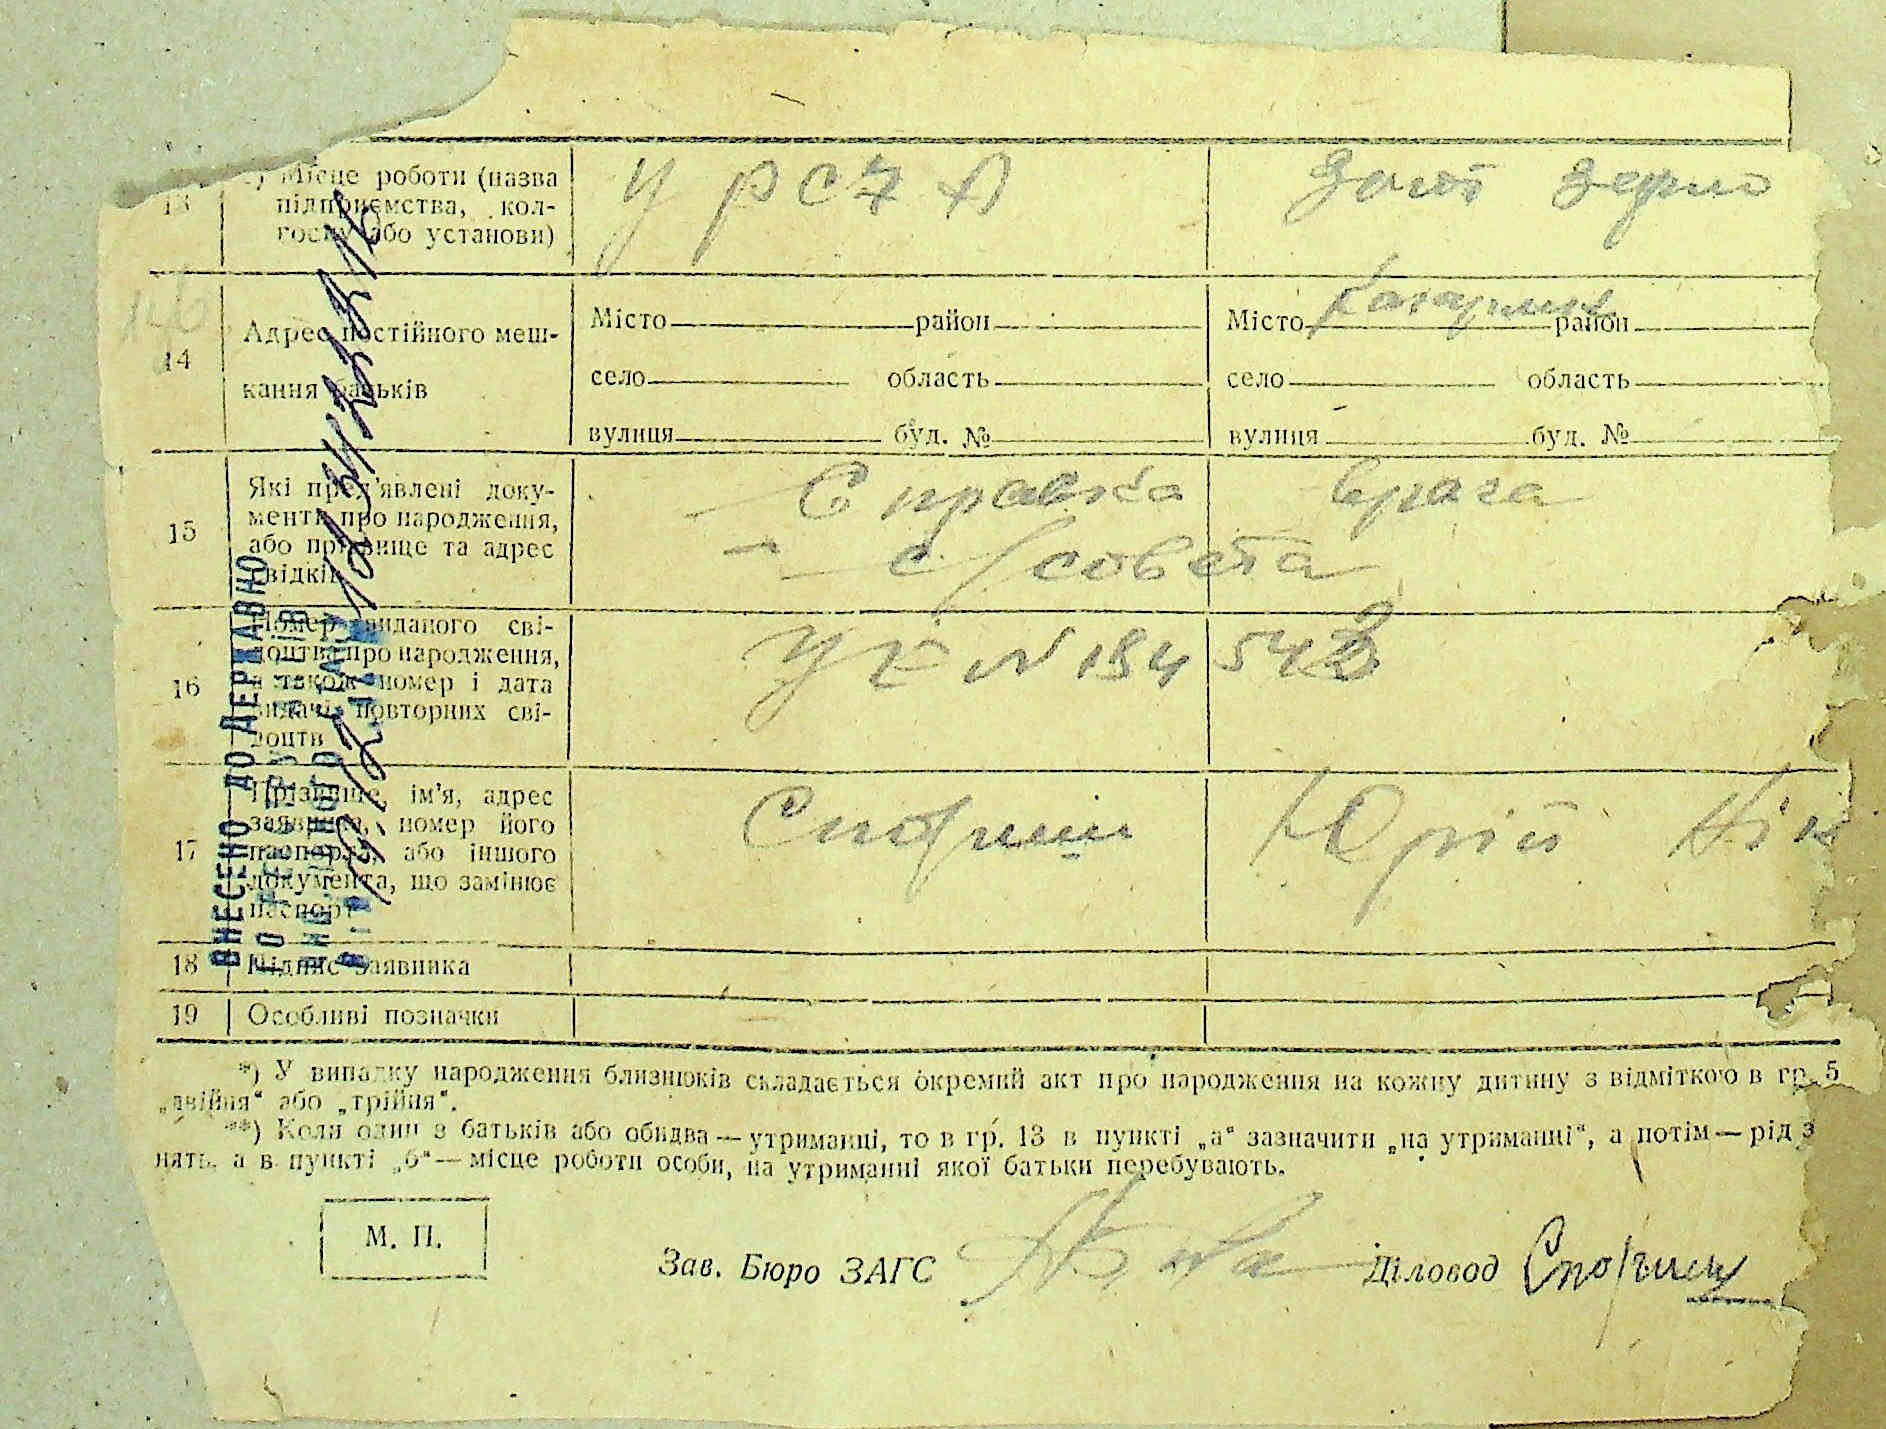 13 Місце роботи (назва
підприємства, кол-
госпу або установи)
У РСЧА
Загот зерно
14 Адрес постійного меш-
кання батьків
Місто район
село область
вулиця буд. №
Місто Кагарлик район
село область
вулиця буд. №
15 Які пред'явлені доку-
менти про народження,
або прізвище та адрес
свідків
Справка врача
с/совета
16 Номер виданого сві-
доцтва про народження,
а також номер і дата
видачі повторних сві-
доцтв
№ 194542
17 Прізвище, ім'я, адрес
заявника, номер його
паспорта, або іншого
документа, що замінює
паспорт
Спориш Юрій Нік
18 Підпис заявника
19 Особливі позначки
ВНЕСЕНО ДО ДЕРЖАВНО
ГО РЕЄСТРУ
*) У випадку народження близнюків складається окремий акт про народження на кожну дитину з відміткою в гр. 5
„двійня“ або „трійня“.
**) Коли один з батьків або обидва—утриманці, то в гр. 13 в пункті „а“ зазначити „на утриманні“, а потім—рід з
нять, а в пункті „б“—місце роботи особи, на утриманні якої батьки перебувають.
М. П.
Зав. Бюро ЗАГС
Діловод Спориш